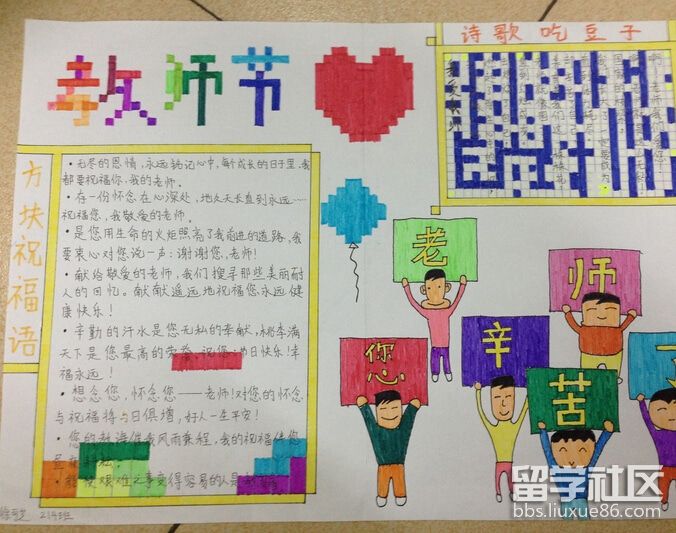 教师节
诗歌吃豆子
我爱教师
方块祝福语
•无尽的恩情,永远铭记心中,每个成长的日子里,我
都要祝福你,我的老师。
•在一份怀念在心深处,地久天长直到永远……
祝福您,我敬爱的老师。
•是您用生命的火炬照亮了我前进的道路,我
要衷心对您说一声:谢谢您,老师!
•献给敬爱的老师,我们搜寻那些美丽耐
人的回忆。献献遥远地祝福您永远健
康快乐!
•辛勤的汗水是您无私的奉献,桃李满
天下是您最高的荣誉,祝您:节日快乐!幸
福永远!
•想念您,怀念您——老师!对您的怀念
与祝福将与日俱增,好人一生平安!
风雨兼程,我的祝福伴您
艰难之事变得容易的人是
老师
您辛苦了
214班
留学社区
bbs.liuxue86.com